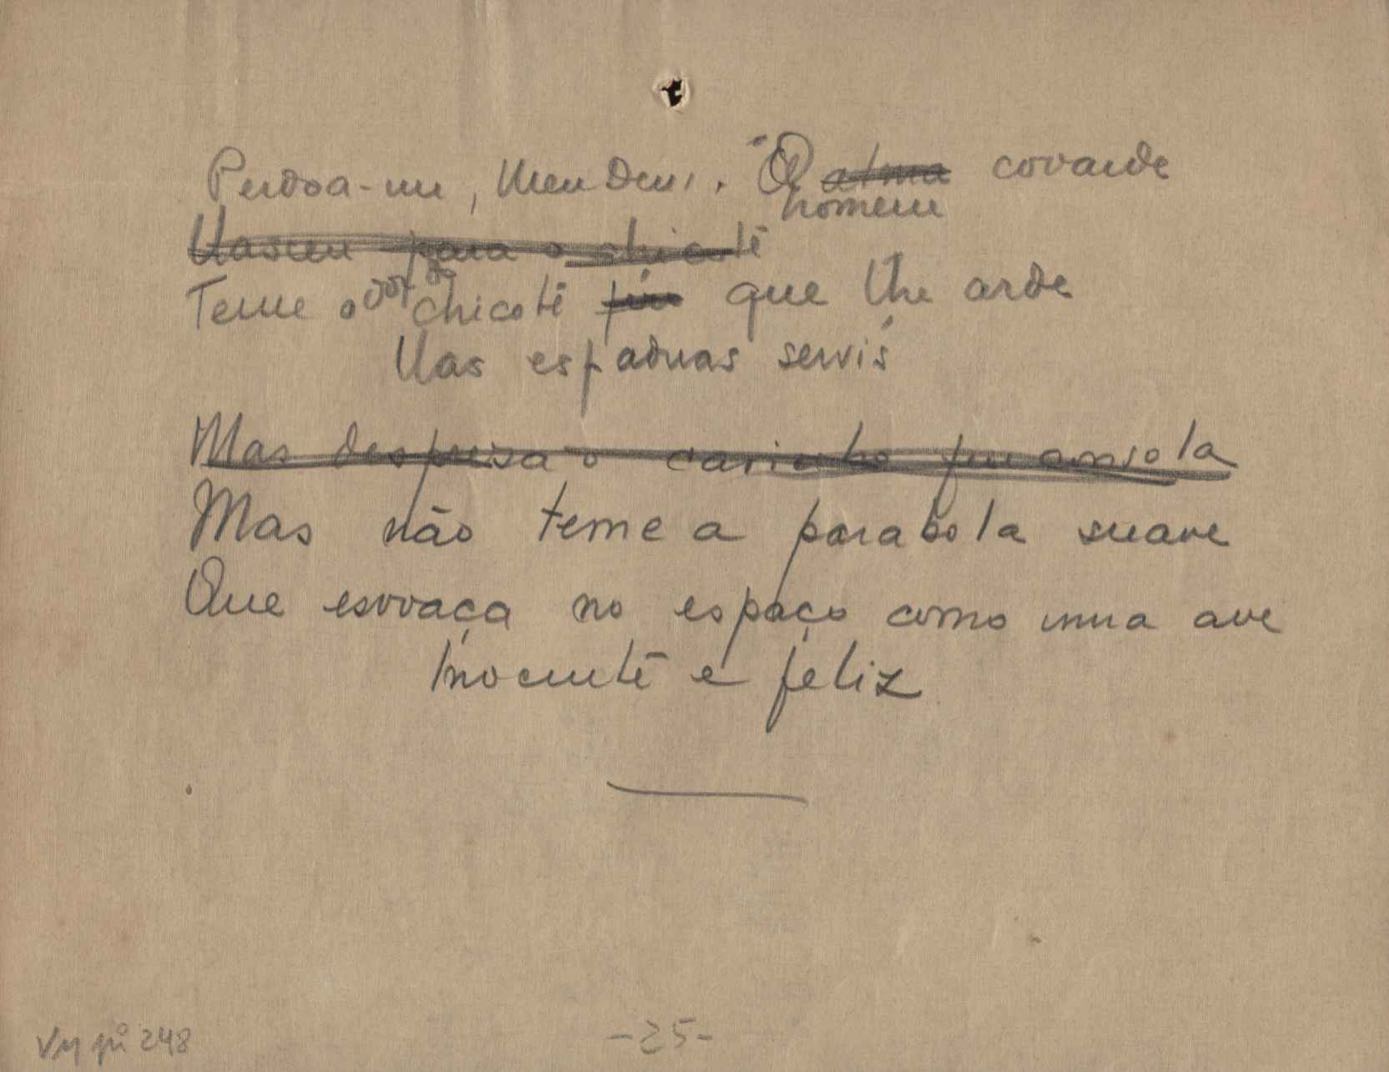 Perdoa-me, Meu Deus. O alma covarde
homem
Nasceu para o chicote
Teme a dor do chicote que lhe arde
Nas espaduas servis
Mas despresa o carinho que consola
Mas não teme a parabola suave
Que esvoaça no espaço como uma ave
Inocente e feliz
-25-